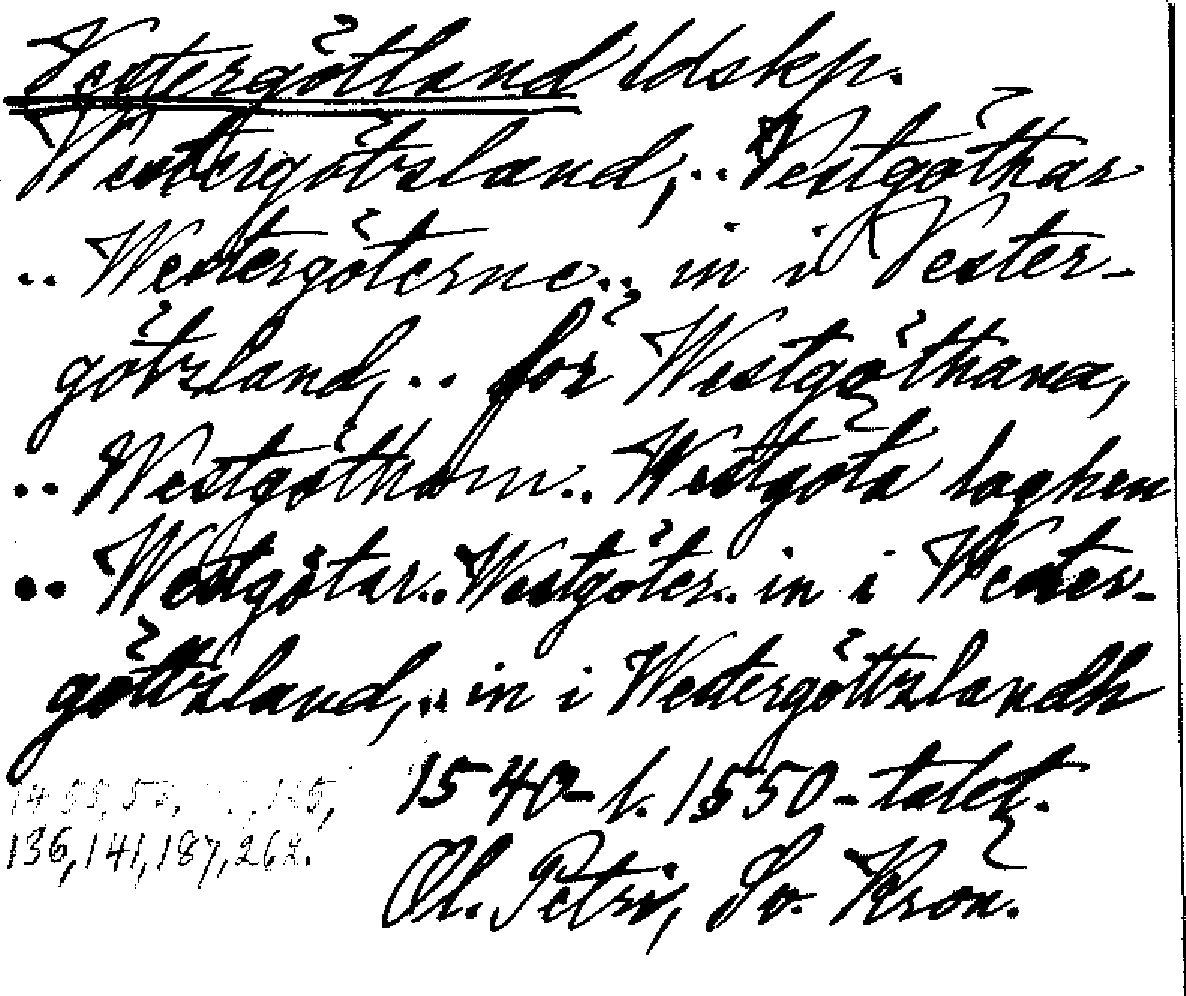 Västergötland ldskp.
Westergötzland, .. Vestgöthar
.. Westergöterne .. in i Vester-
götzland, .. för Westgöthana,
.. Westgöthom .. Westgöta laghen
.. Westgötar .. Westgöter .. in i Wester-
göttzland, .. in i Westergöttzlandh
1540- l. 1550-talet.
136, 141, 187, 262.
Ol. Petri, Sv. Krön.